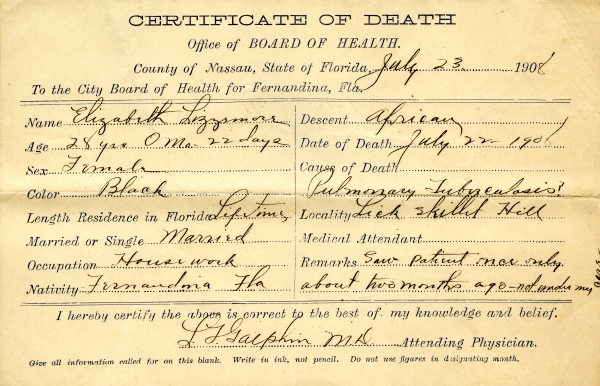 CERTIFICATE OF DEATH
Office of BOARD OF HEALTH.
County of Nassau, State of Florida, July 23 1908
To the City Board of Health for Fernandina, Fla.
Name Elizabeth
Age 28 yrs 0 Mo 22 days
Sex Female
Color Black
Length Residence in Florida Life time
Married or Single Married
Occupation House work
Nativity Fernandina Fla
Descent African
Date of Death July 22 - 1908
Cause of Death
Pulmonary Tuberculosis?
Locality Lick Skillit Hill
Medical Attendant
Remarks Saw patient once only
about two months ago - not under my
I hereby certify the above is correct to the best of my knowledge and belief.
M.D Attending Physician.
Give all information called for on this blank. Write in ink, not pencil. Do not use figures in designating month.